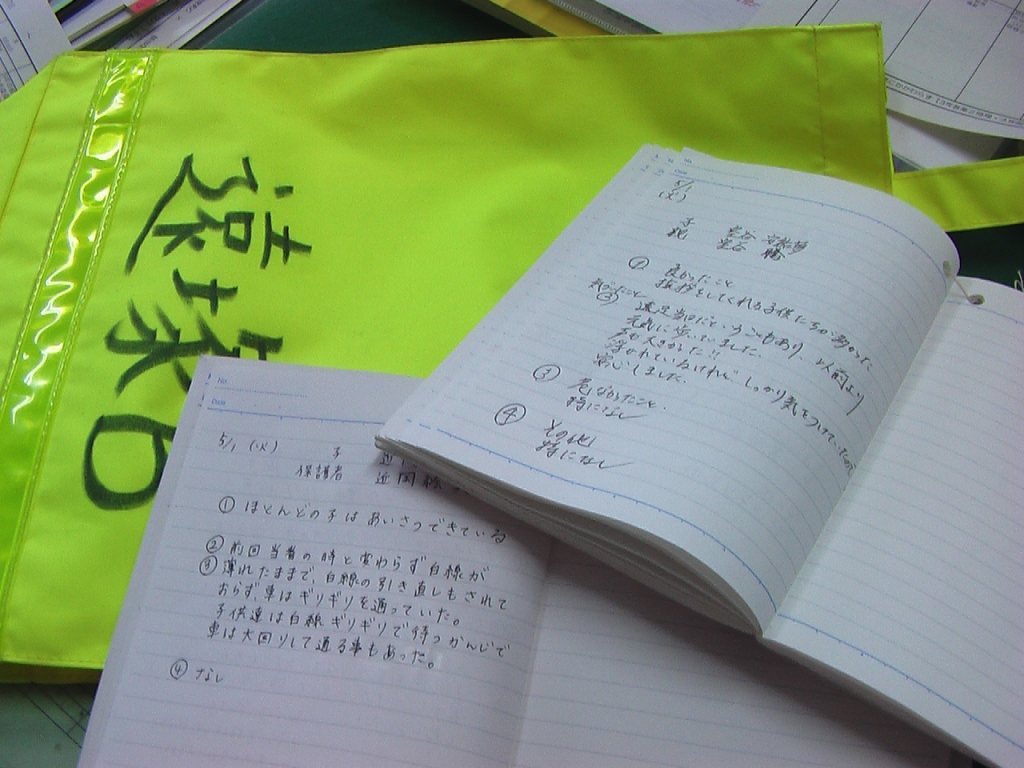 遠塚
5/1
(火)
子
親
① 良かったこと
挨拶をしてくれる子供たちが多かった
気づいたこと
② 遠足当日だということもあり、以前より
元気に歩いていました。
声も大きかった!!
浮かれているけれど、しっかり気をつけていたので
安心しました。
③ 危なかったこと
特になし
④ その他
特になし
No.
Date
5/1 (火) 子
保護者 近岡
① ほとんどの子はあいさつできている
② 前回当番の時と変わらず白線が
③ 薄れたままで、白線の引き直しもされて
おらず、車はギリギリを通っていた。
子供達は白線ギリギリで待つかんじで
車は大回りして通る事もあった。
④ なし